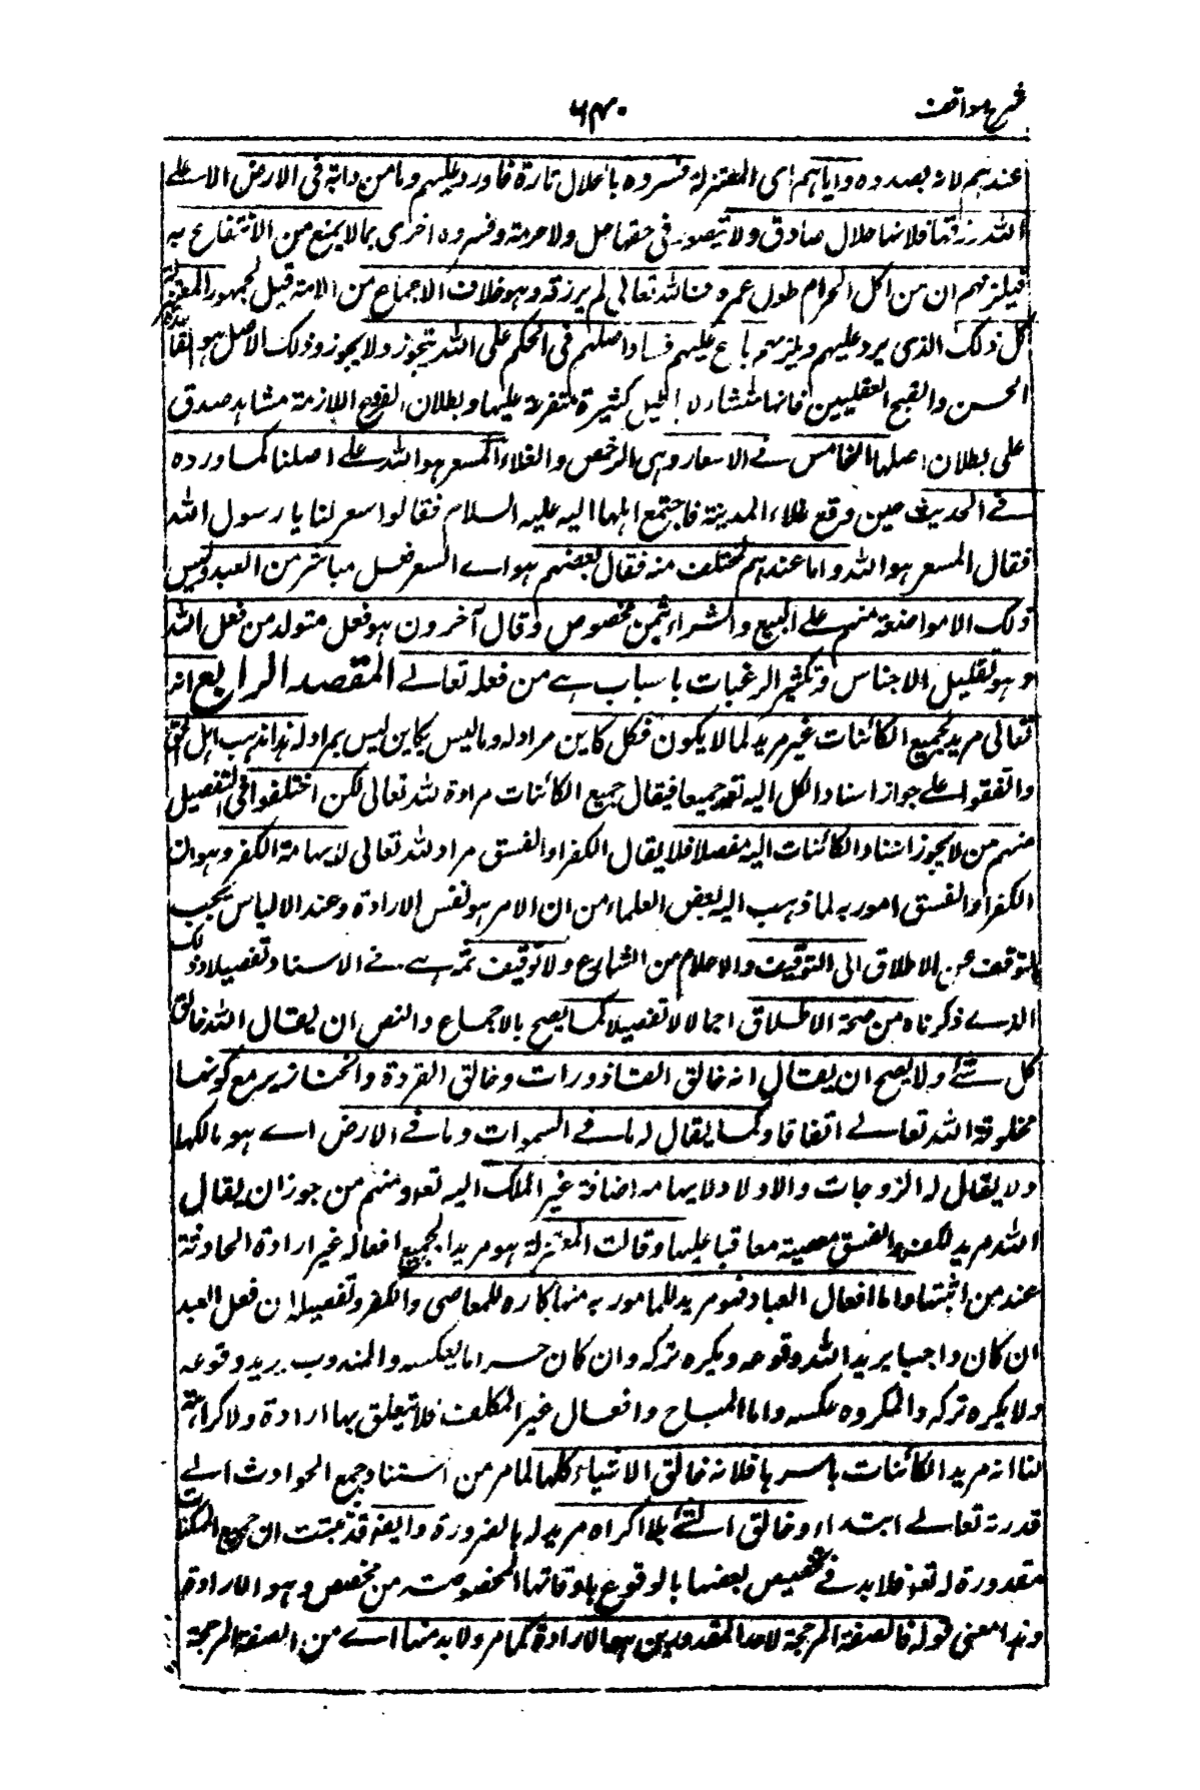 شرح مواقف
۶۴۰
عندهم لا نه بصدده واياهم اى المعتزلة فسروه بالحلال تارة فاورد عليهم وما من دابة فى الارض الا على
الله رزقها فلانها حلال صادق ولا يتصور فى حقها حل ولا حرمة وفسروه اخرى بما لا يمنع من الانتفاع به
فيلزمهم ان من اكل الحرام طول عمره فالله تعالى لم يرزقه وهو خلاف الاجماع من الامة قبل لجمهور المعتزلة
كل ذلك الذى يرد عليهم ويلزمهم باع عليهم فساد اصلهم فى الحكم على الله بيجوز ولا يجوز وذلك الاصل هو قاعدة
الحسن والقبح العقليين فانها منشأ لاباطيل كثيرة متفرعة عليها وبطلان الفروع اللازمة مشاهد صدق
على بطلان اصلها الخامس فى الاسعار وهى الرخص والغلاء المسعر هو الله على اصلنا كما ورده
فى الحديث حين وقع غلاء المدينة فاجتمع اهلها اليه عليه السلام فقالوا سعر لنا يا رسول الله
فقال المسعر هو الله واما عندهم فمختلف منه فقال بعضهم هو اے السعر فعل مباشر من العبد وليس
ذلك الا مواضعة منهم على البيع والشراء بثمن مخصوص وقال آخرون هو فعل متولد من فعل الله
وهو تقليل الاجناس وتكثير الرغبات باسباب هے من فعله تعالے المقصد الرابع انه
تعالى مريد لجميع الكائنات غير مريد لما لا يكون فكل كاين مراد له وما ليس بكاين ليس بمراد له هذا مذهب اهل الحق
واتفقوا على جواز اسناد الكل اليه تعه جميعا فيقال جميع الكائنات مرادة لله تعالى لكن اختلفوا فى التفصيل
منهم من لا يجوز اسناد الكائنات اليه مفصلا فلا يقال الكفر او الفسق مراد لله تعالى لايهامه الكفر وهو ان
الكفر او الفسق امور به لما ذهب اليه بعض العلماء من ان الامر هو نفس الارادة وعند الالباس يجب
التوقف عن الاطلاق الى التوقيف والاعلام من الشارع ولا توقيف ثمه اے فے الاسناد تفصيلا وذلك
الذے ذكرناه من صحة الاطلاق اجمالا لا تفصيلا كما يصح بالاجماع والنص ان يقال الله خالق
كل شئے ولا يصح ان يقال انه خالق القاذورات وخالق القردة والخنازير مع كونها
مخلوقة الله تعالے اتفاقا وكما يقال له ما فے السموات وما فے الارض اے هو مالكها
ولا يقال له الزوجات والاولاد لايهامه اضافة غير الملك اليه تعه ومنهم من جوز ان يقال
الله مريد للكفر والفسق معصية معاقبا عليها وقالت المعتزلة هو مريد الجميع افعاله غير ارادة الحادثة
عند من اثبتها واما افعال العباد فهو مريد للمامور به منها كاره للمعاصى والكفر وتفصيله ان فعل العبد
ان كان واجبا يريد الله وقوعه ويكره تركه وان كان حراما بعكسه والمندوب يريد وقوعه
ولا يكره تركه والمكروه عكسه واما المباح وافعال غير المكلف فلا يتعلق بها ارادة ولا كراهة
لنا انه مريد الكائنات باسرها فلانه خالق الاشياء كلها لما مر من استناد جميع الحوادث الے
قدرته تعالے ابتداء وخالق الشئے بلا اكراه مريد له بالضرورة وايضه قد ثبتت ان جميع الممكنات
مقدورة له تعه فلابد فے تخصيص بعضها بالوقوع باوقاتها المخصوصة من مخصص وهو الارادة
وهذا معنى قوله فالصفة المرجحة لاحد المقدورين هى الارادة كما مر ولابد منها اے من الصفة المرجحة